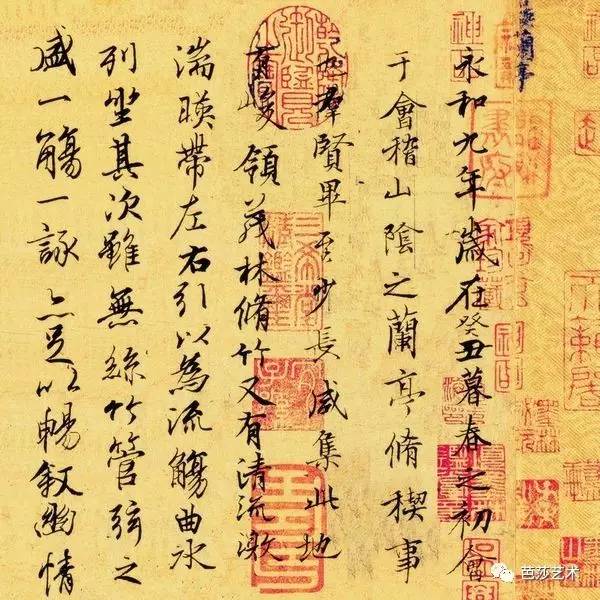 蘭亭
永和九年歲在癸丑暮春之初會
于會稽山陰之蘭亭脩稧事
也羣賢畢至少長咸集此地
峻領茂林脩竹又有清流激
湍暎帶左右引以為流觴曲水
列坐其次雖無絲竹管弦之
盛一觴一詠亦足以暢敘幽情
芭莎艺术